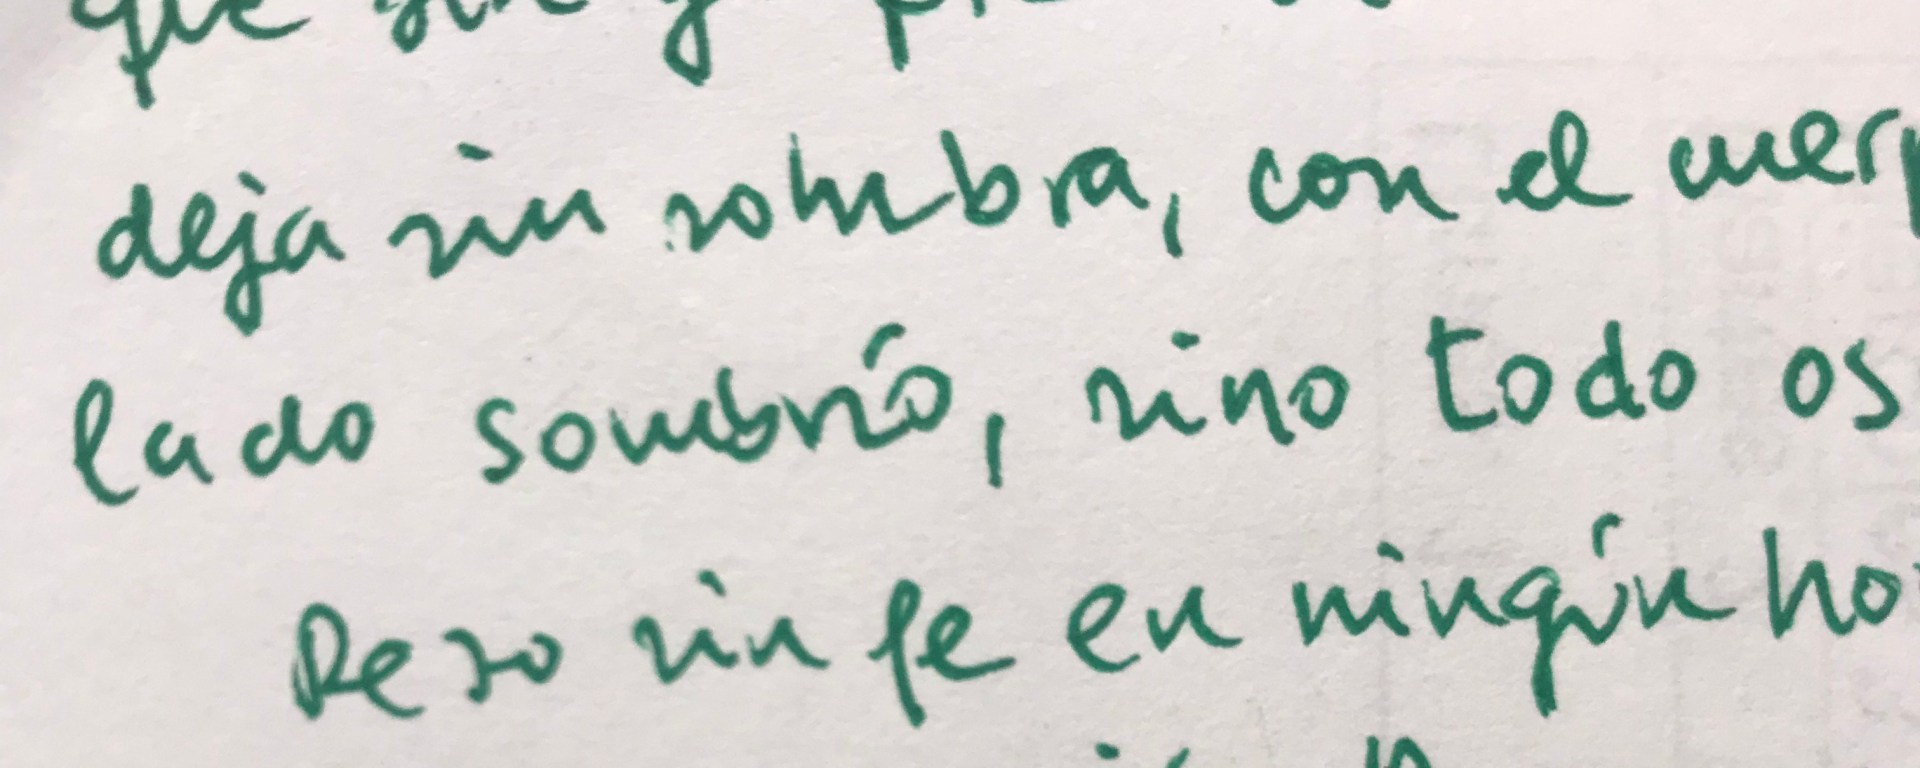 que sin y
deja sin sombra, con el cuerp
lado sombrío, sino todo os
Rezo sin fe en ningún ho